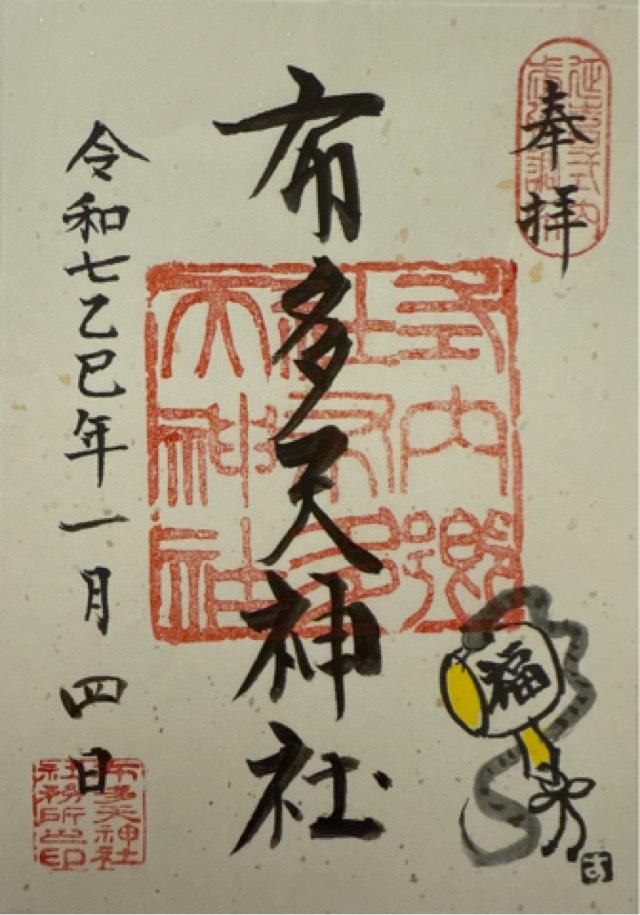 延喜式内
奉拝
式内郷
社布多
天神社
布多天神社
福
令和七乙巳年一月四日
布多天神社
社務所之印